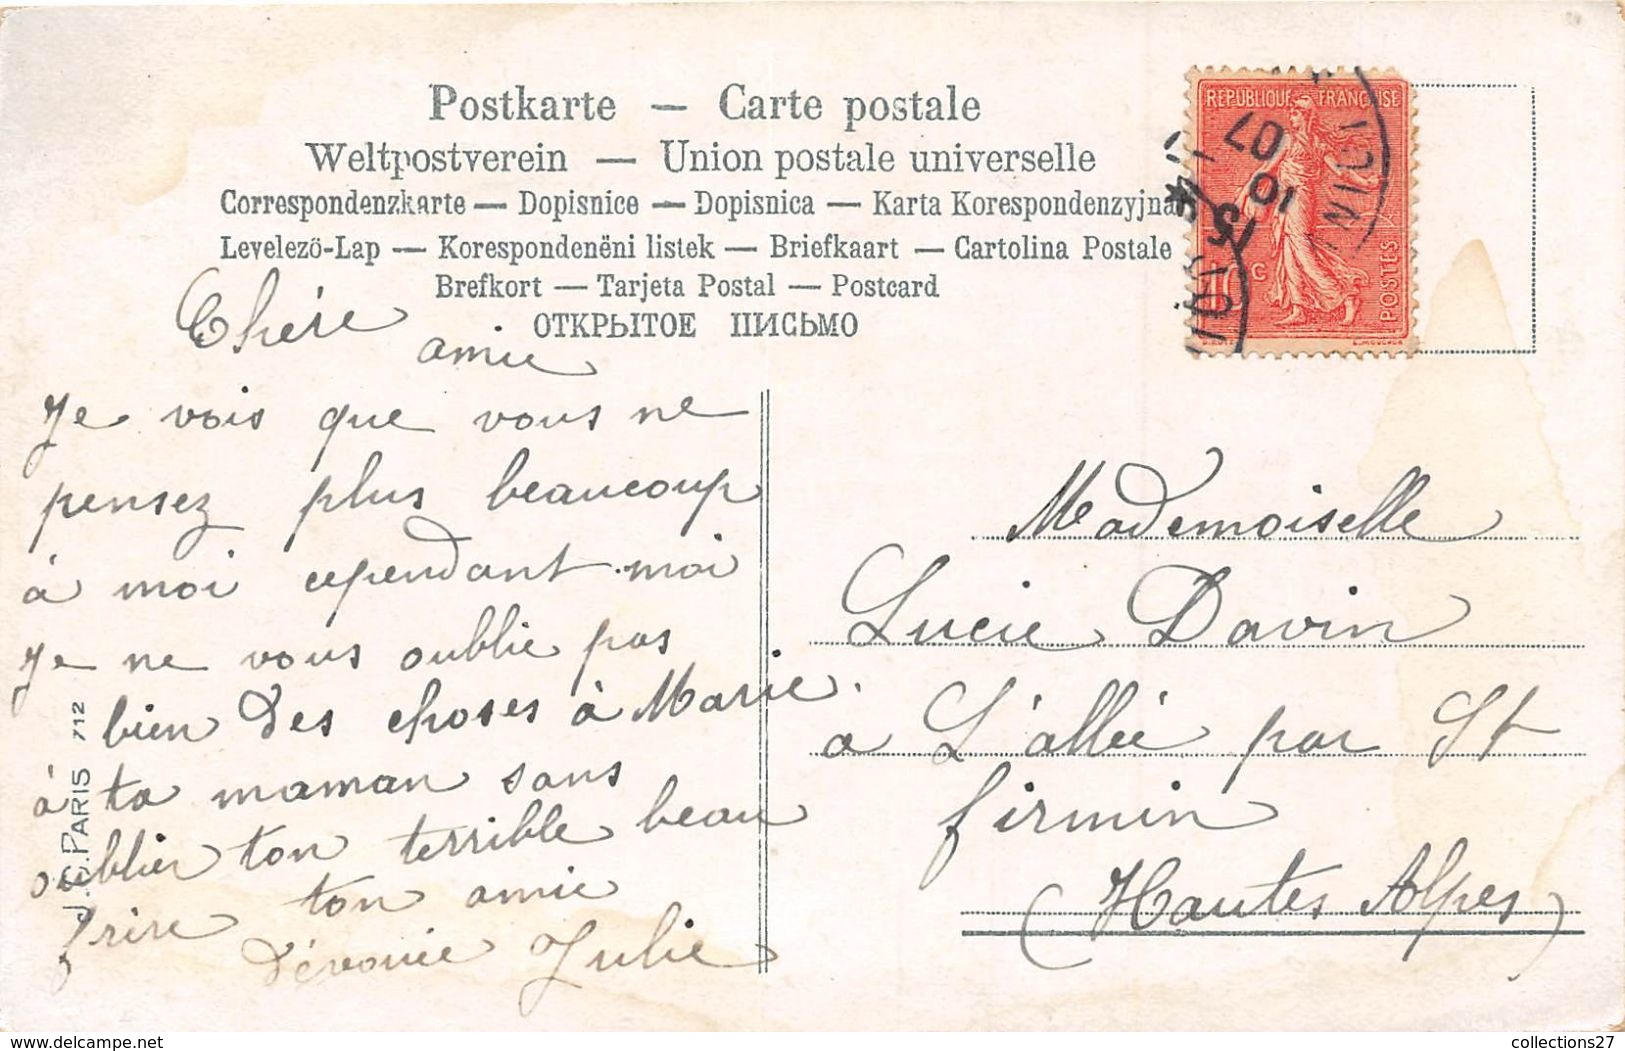 Postkarte — Carte postale
Weltpostverein — Union postale universelle
Correspondenzkarte — Dopisnice — Dopisnica — Karta Korespondenzyjna
Levelezö-Lap — Korespondenëni listek — Briefkaart — Cartolina Postale
Brefkort — Tarjeta Postal — Postcard
ОТКРЫТОЕ ПИСЬМО
REPUBLIQUE FRANÇAISE
10c
POSTES
10
07
Chére
amie
Je vois que vous ne
pensez plus beaucoup
à moi cependant moi
Je ne vous oublie pas
bien des choses à Marie.
à ta maman sans
oublier ton terrible beau
frire ton amie
dévouée Julie
J.C. PARIS 712
Mademoiselle
Lucie Davin
a L'allée par St
firmin
(Hautes Alpes)
delcampe.net
collections27